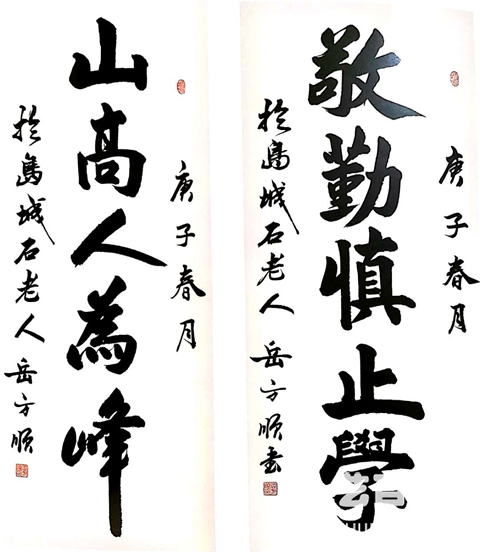 庚子春月
敬勤慎止學
於島城石老人岳方順書
庚子春月
山高人為峰
於島城石老人岳方順